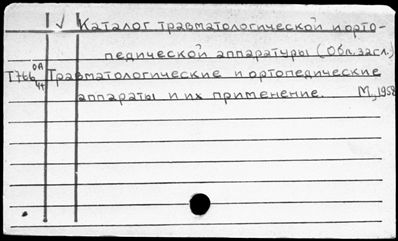 √ Каталог травматологической и орто-
педической аппаратуры (Обл. загл.)
Т766 ОА Травматологические и ортопедические
44 аппараты и их применение. М, 1958